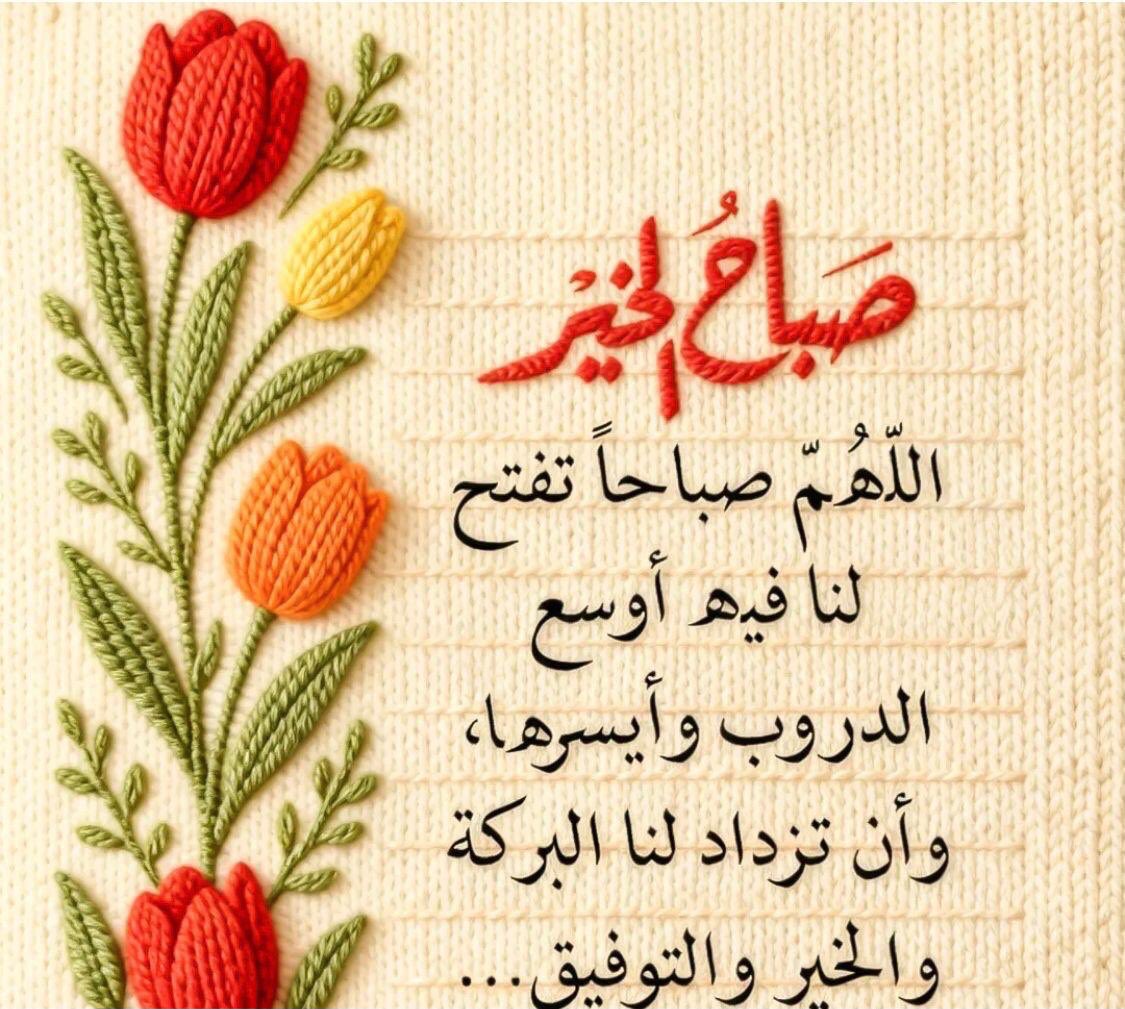 صَبَاحُ الخَيْر
اللّهُمّ صباحاً تفتح
لنا فيه أوسع
الدروب وأيسرها،
وأن تزداد لنا البركة
والخير والتوفيق...